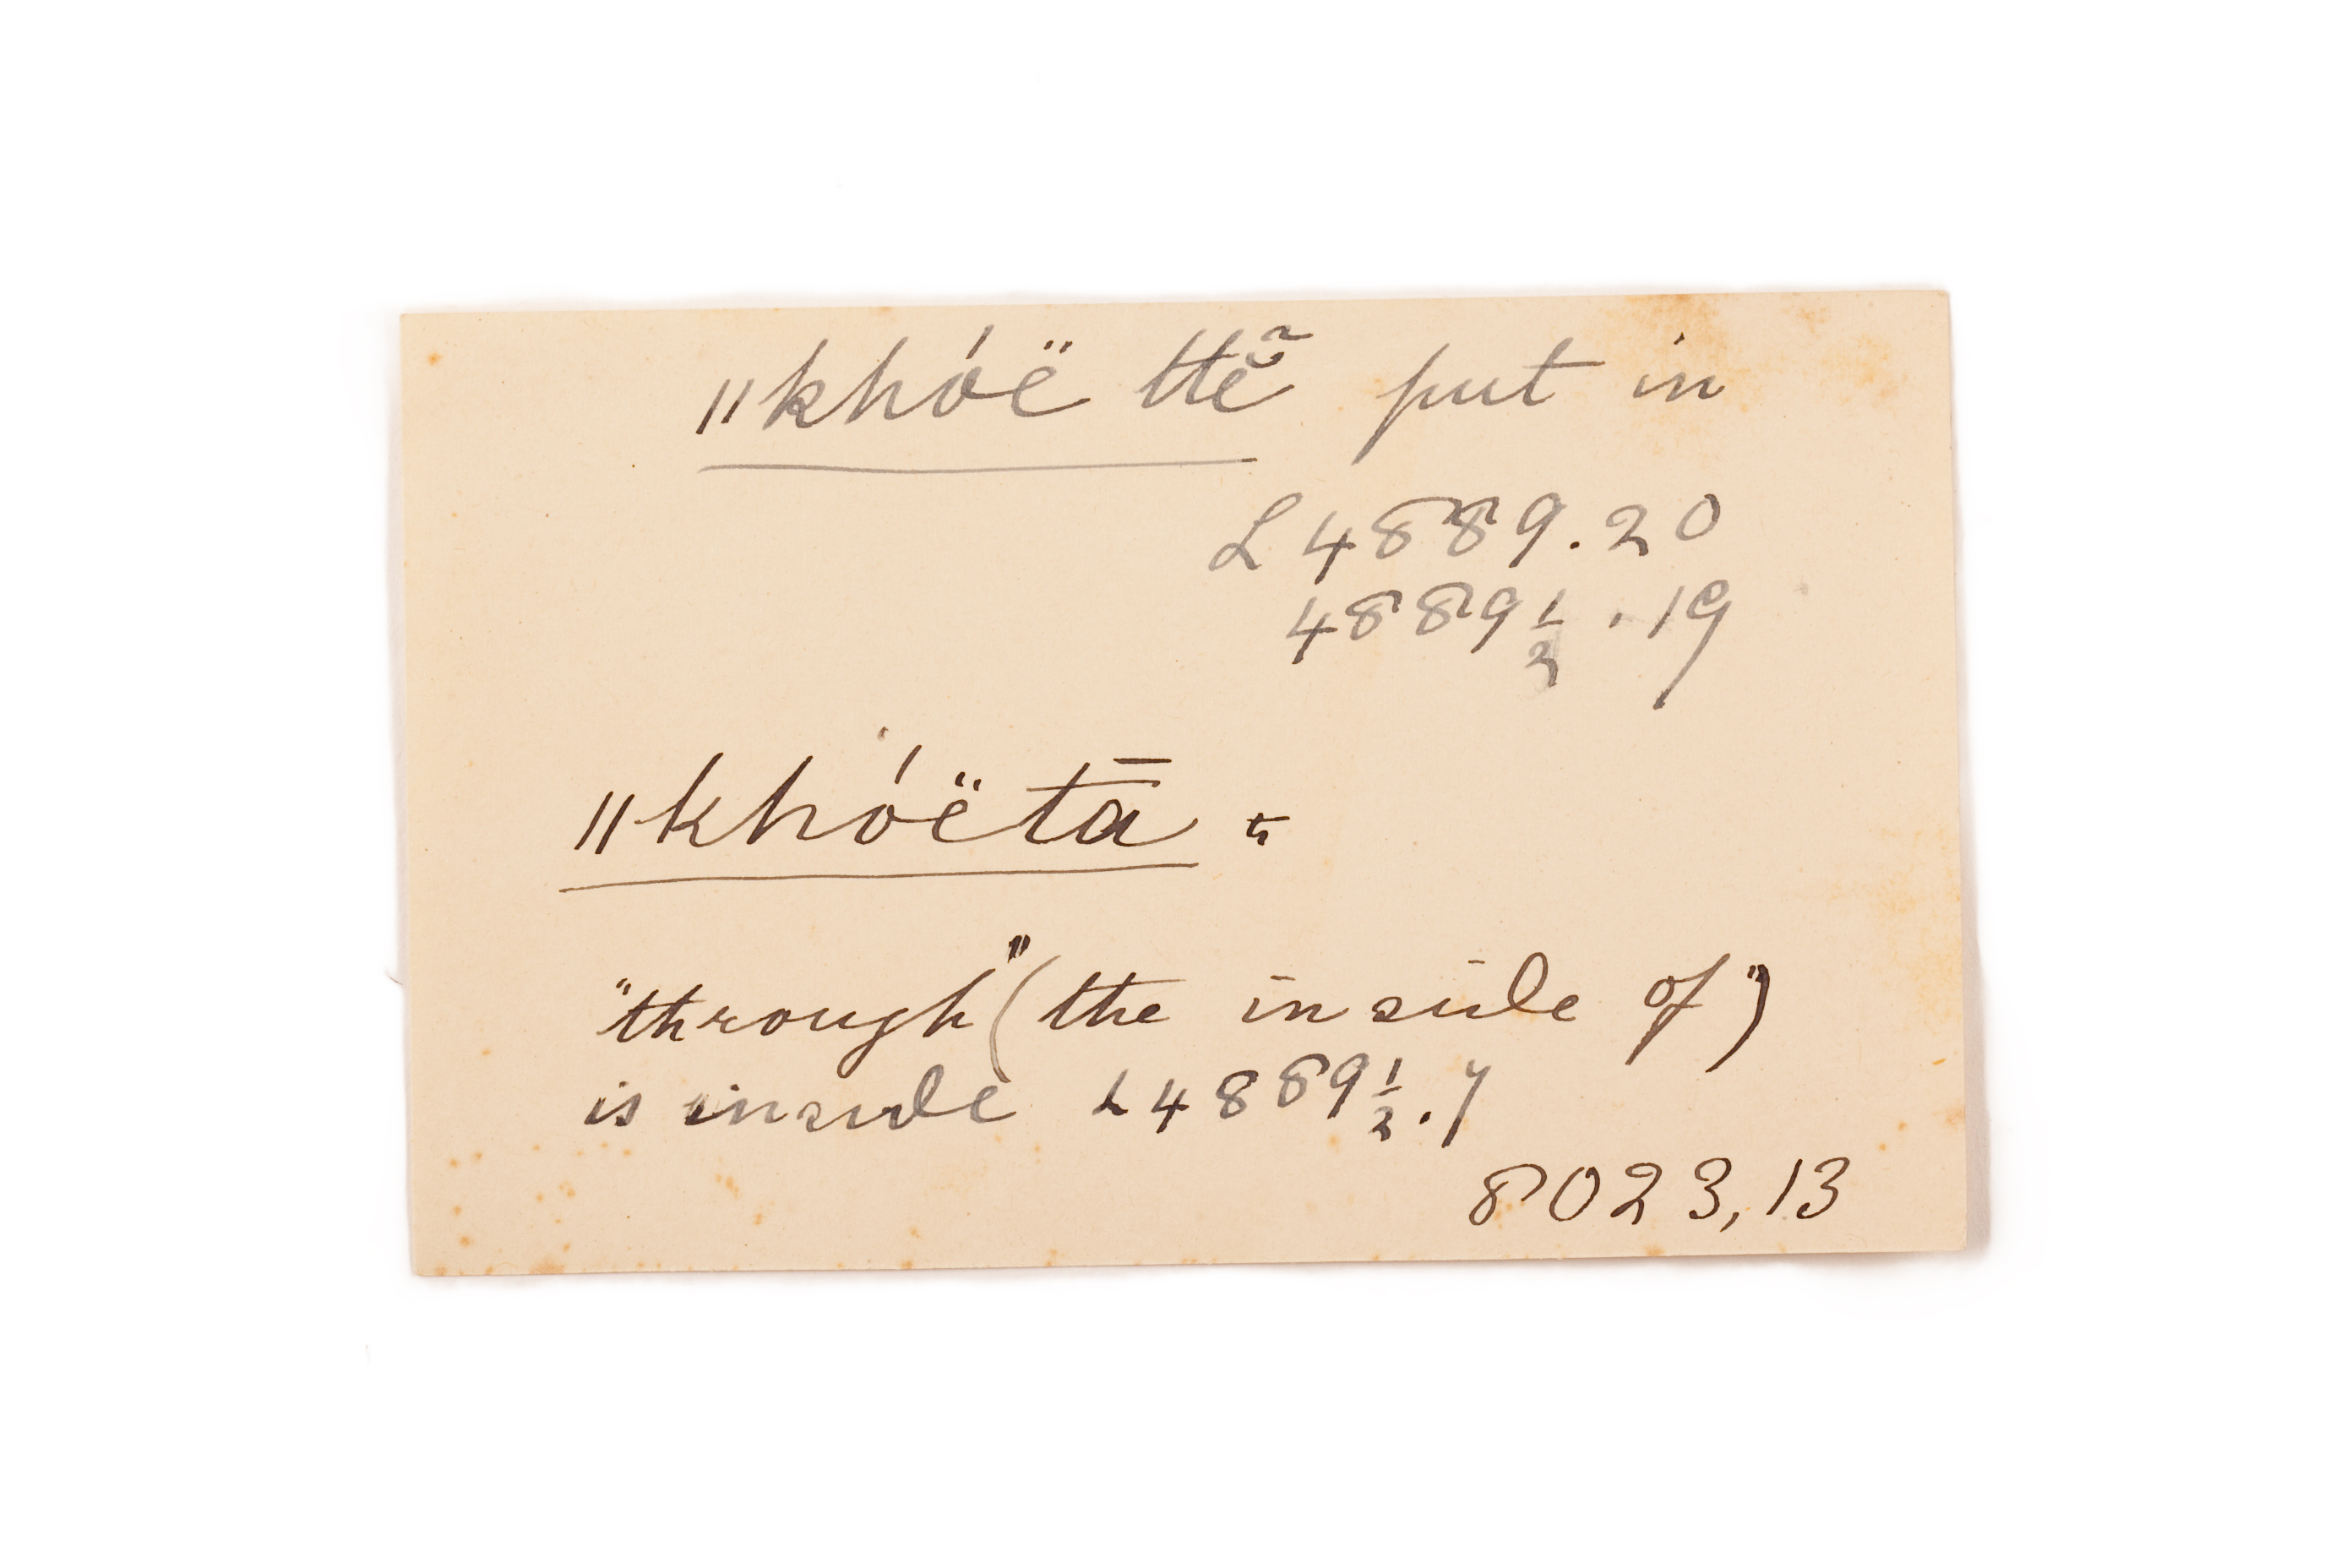 ǁkhóë ttẽ̆ put in
L 4889.20
4889½.19
ǁkhóëtā =
"through" (the inside of")
is inside L 4889½.7
8023,13